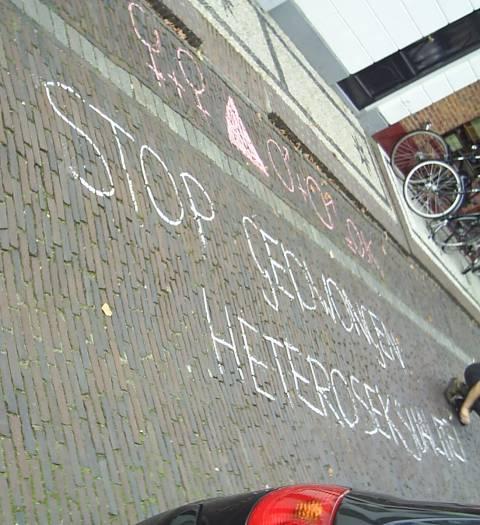 STOP GEDWONGEN
HETEROSEKSUALITEIT